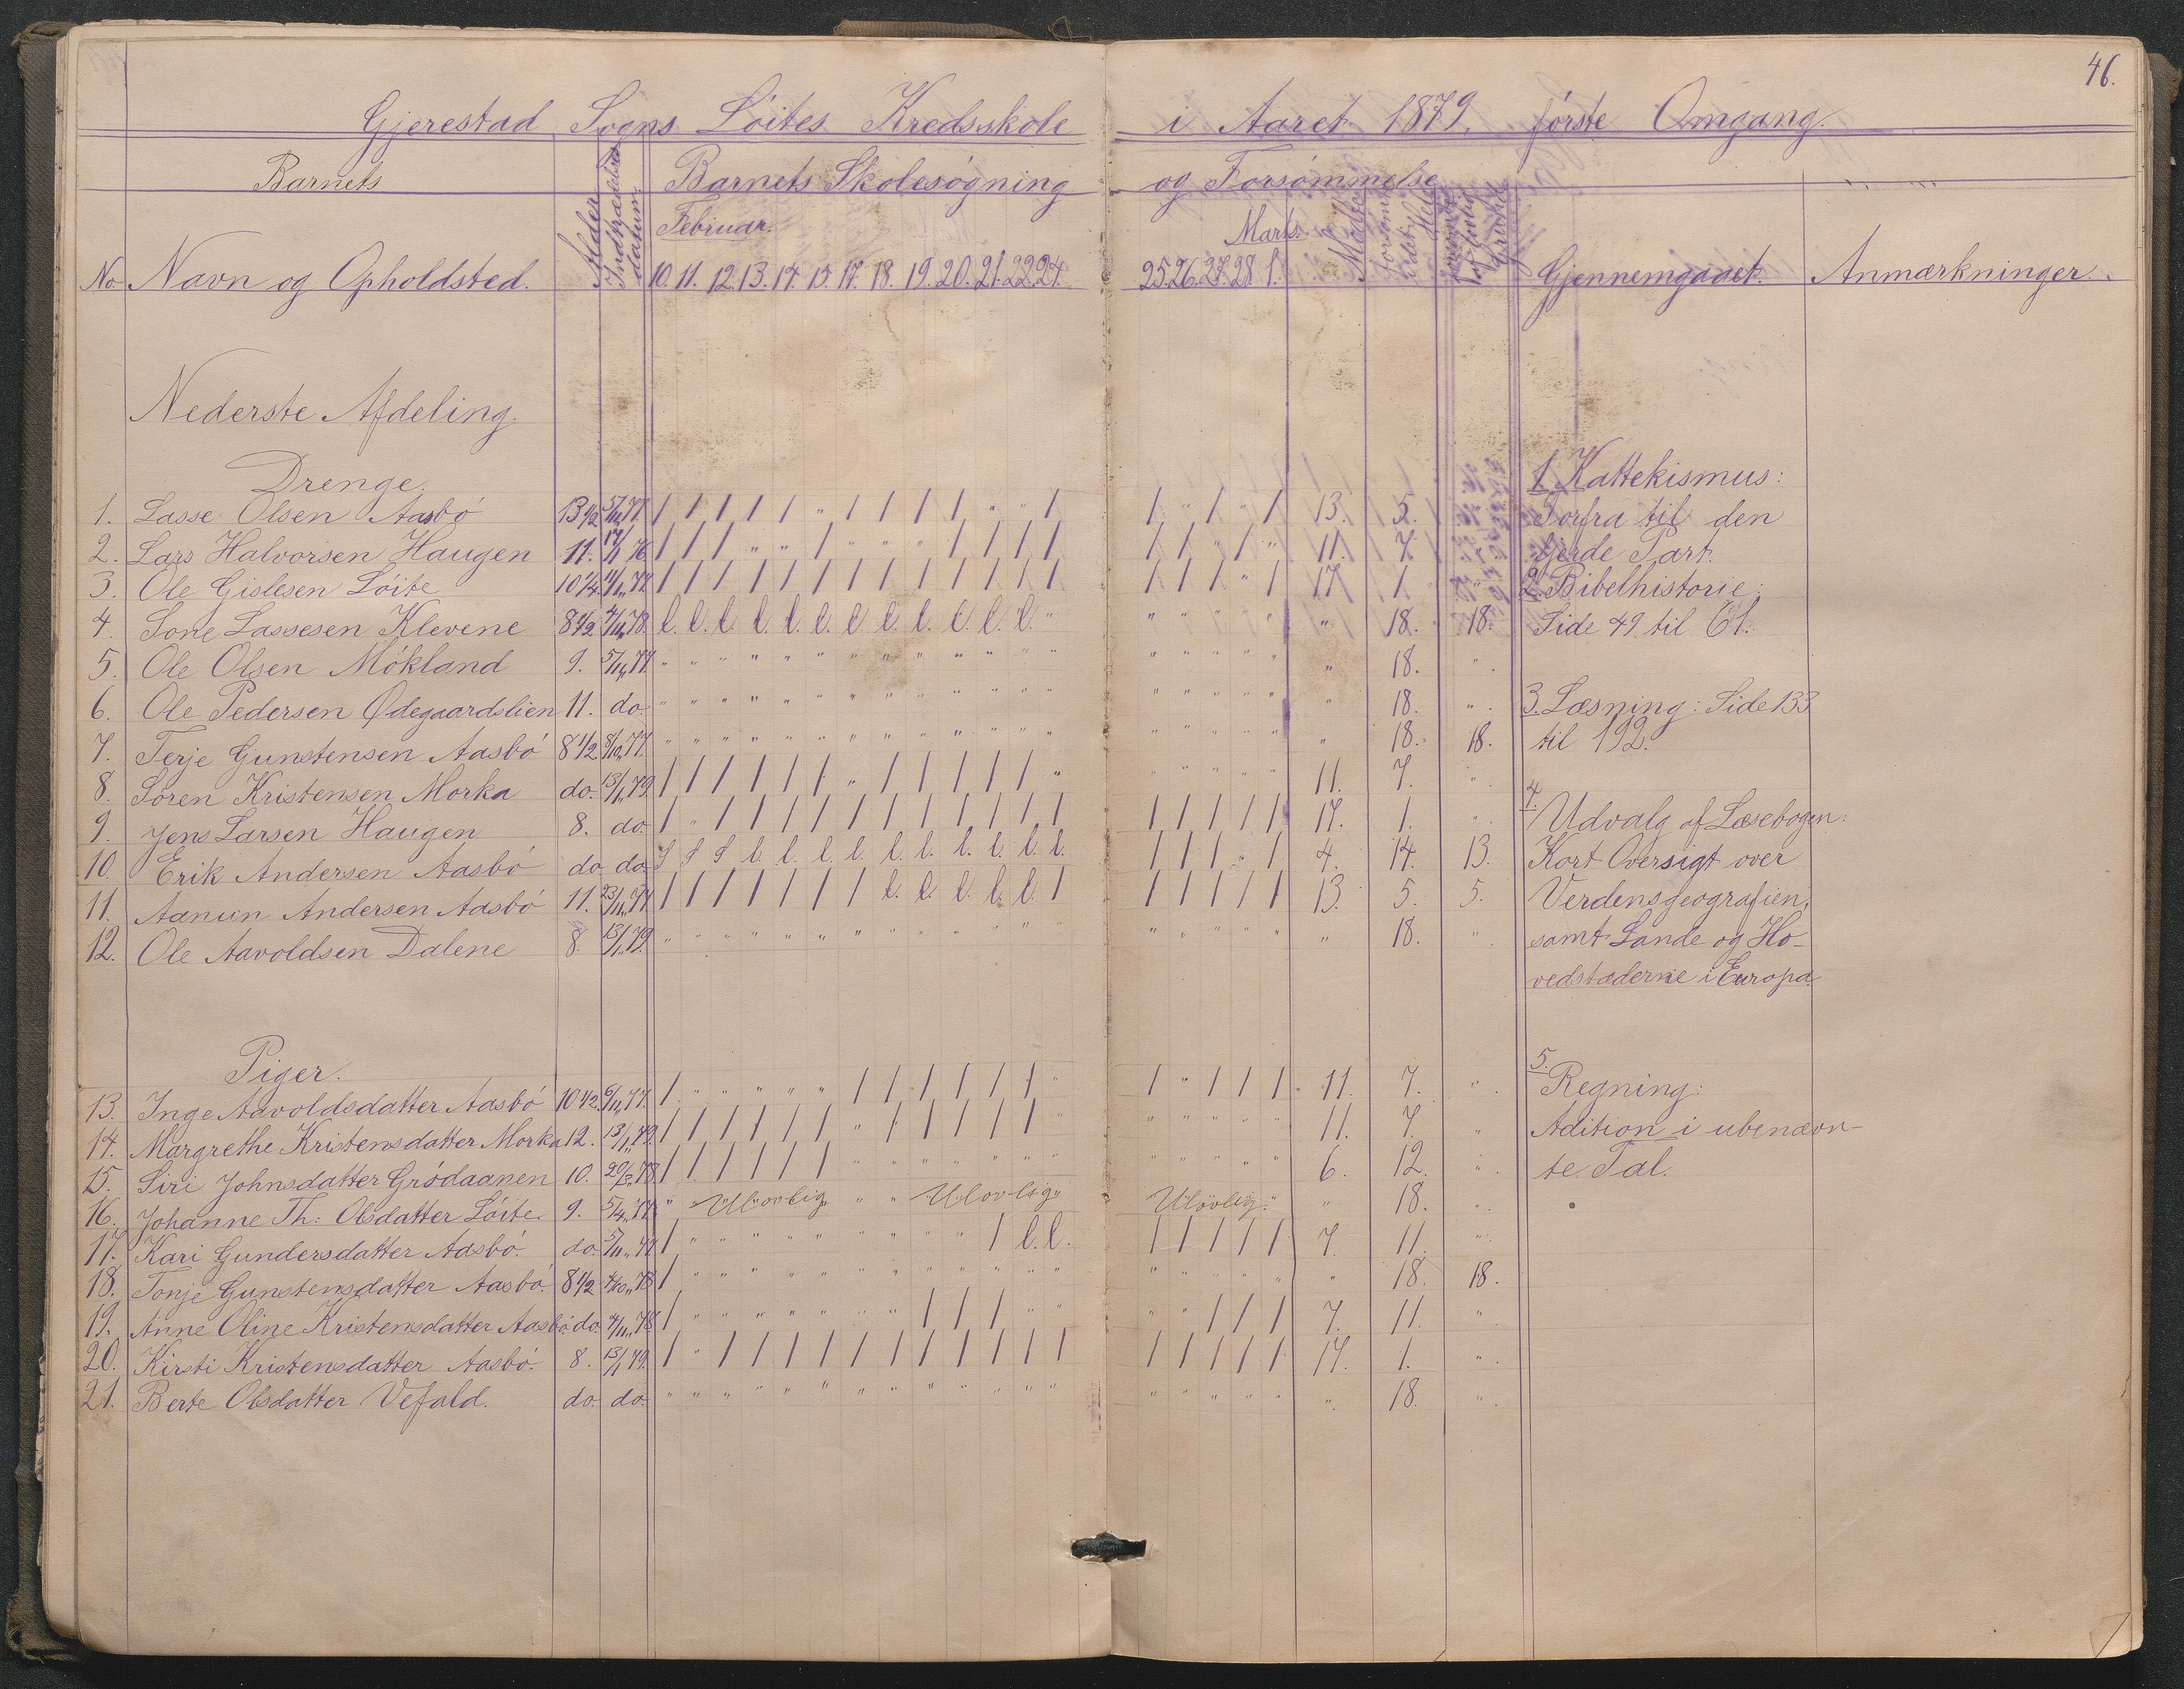 46.
Gjerestad Sogns Lóites Kredsskole i Aaret 1879. fórste Omgang.
Barnets Alder Indtrædelses datum. Barnets Skolesógning og Forsómmelse
Februar. Marts.
No Navn og Opholdsted. 10. 11. 12. 13. 14. 15. 17. 18. 19. 20. 21. 22. 24. 25. 26. 27. 28. 1. Gjennemgaaet. Anmærkninger.
Nederste Afdeling.
Drenge.
1. Lasse Olsen Aasbó 13 1/2 5/11 77. / / / / / " / / / / " " / / " / " / 13. 5. "
2. Lars Halvorsen Haugen 11. 17/1 76 / / / " " / " " " / / / / / / " / " 11. 7. "
3. Ole Gislesen Lóite 10 1/4 77. / / / / / / / / / / / / / / / / " / 17. 1. "
4. Sone Lassesen Klevene 8 1/2 4/11 78. l. l. l. l. l. l. l. l. l. l. l. l. " " " " " " " 18. 18.
5. Ole Olsen Mókland 9. 5/11 77. " " " " " " " " " " " " " " " " " " " 18. "
6. Ole Pedersen Ødegaardslien 11. do. " " " " " " " " " " " " " " " " " " " 18. "
7. Terje Gunstensen Aasbó 8 1/2. 8/10 77. " " " " " " " " " " " " " " " " " " " 18. 18.
8. Sóren Kristensen Morka do. 13/1 79. / / / / / / " / / / / / " " " " " " 11. 7. "
9. Jens Larsen Haugen 8. do. / " / / / / / / / / / / / / / / / / 17. 1. "
10. Erik Andersen Aasbó do do. S S S l. l. l. l. l. l. l. l. l. l. / / / " / 4. 14. 13.
11. Aanun Andersen Aasbó 11. 23/11 77 / / / / / / / l. l. l. l. l. / / / / / / 13. 5. 5.
12. Ole Aavoldsen Dalene 8. 13/1 79. " " " " " " " " " " " " " " " " " " " 18. "
Piger.
13. Inge Aavoldsdatter Aasbó 10 1/2. 6/11 77. / " " " " " / / / / / / " / " / / / 11. 7. "
14. Margrethe Kristensdatter Morka 12. 13/1 79. / / / / / / " / / / / / " " " " " " 11. 7. "
15. Siri Johnsdatter Gródaanen 10. 78. / / / / / / " " " " " " " " " " " " 6. 12. "
16. Johanne Th: Olsdatter Lóite. 9. 5/4 77. " Ulovlig " " Ulovlig Ulovlig " 18. "
17. Kari Gundersdatter Aasbó. do. 5/11 77 / " " " " " " " " " / l. l. / / / / / 7. 11. "
18. Tonje Gunstensdatter Aasbó. 8 1/2 78 / " " " " " " " " " " " " " " " " " " 18. 18.
19. Anne Oline Kristensdatter Aasbó. do. 4/11 78 / " " " " " " " / / / " " " " / / / 7. 11. "
20. Kirsti Kristensdatter Aasbó. 8. 13/1 79. / " / / / / / / / / / / / / / / / / 17. 1. "
21. Berte Olsdatter Vefald. do. do. " " " " " " " " " " " " " " " " " " " 18. "
1. Kattekismus:
Forfra til den
fjerde Part.
2. Bibelhistorie:
Side 49 til 61.
3. Læsning: Side 133
til 192.
4.
Udvalg af Læsebogen:
Kort Oversigt over
Verdensgeografien,
samt Lande og Ho-
vedstæderne i Europa.
5.
Regning:
Adition i ubenævn-
te Tal.